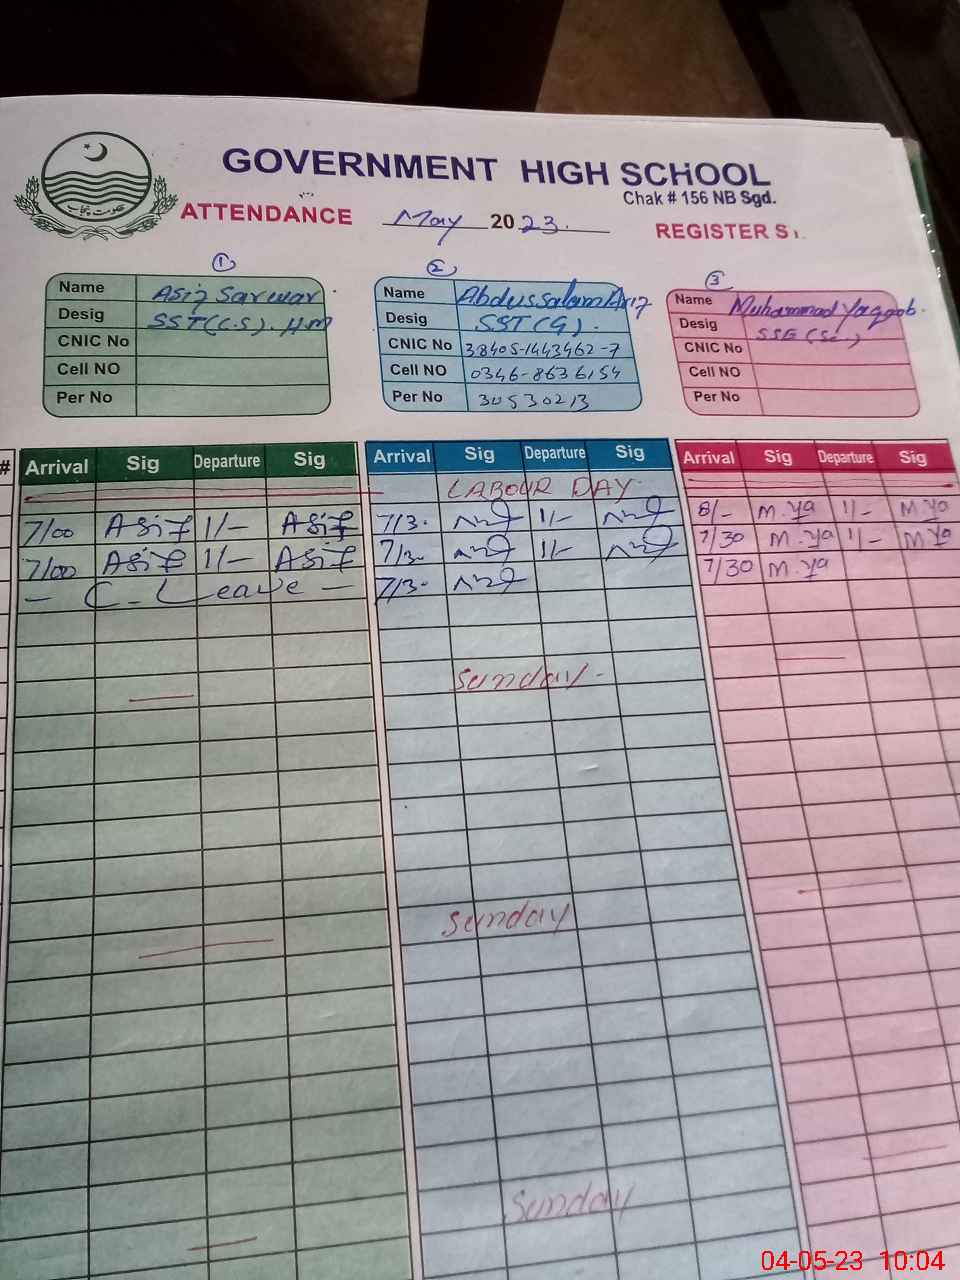 GOVERNMENT HIGH SCHOOL
Chak # 156 NB Sgd.
حکومت پنجاب
ATTENDANCE May 2023. REGISTER S
① ② ③
Name Asif Sarwar
Desig SST(C.S). H.M
CNIC No
Cell NO
Per No
Name Abdussalam Arif
Desig SST(G).
CNIC No 38405-1443462-7
Cell NO 0346-8636154
Per No 30530213
Name Muhammad Yaqoob.
Desig SSE (Sc.)
CNIC No
Cell NO
Per No
# Arrival Sig Departure Sig Arrival Sig Departure Sig Arrival Sig Departure Sig
LABOUR DAY
7/00 Asif 1/- Asif 7/30 1/- 8/- M.Ya 1/- M.Ya
7/00 Asif 1/- Asif 7/30 1/- 7/30 M.Ya 1/- M.Ya
- C-Leave - 7/30 7/30 M.Ya
Sunday -
Sunday
Sunday
04-05-23 10:04